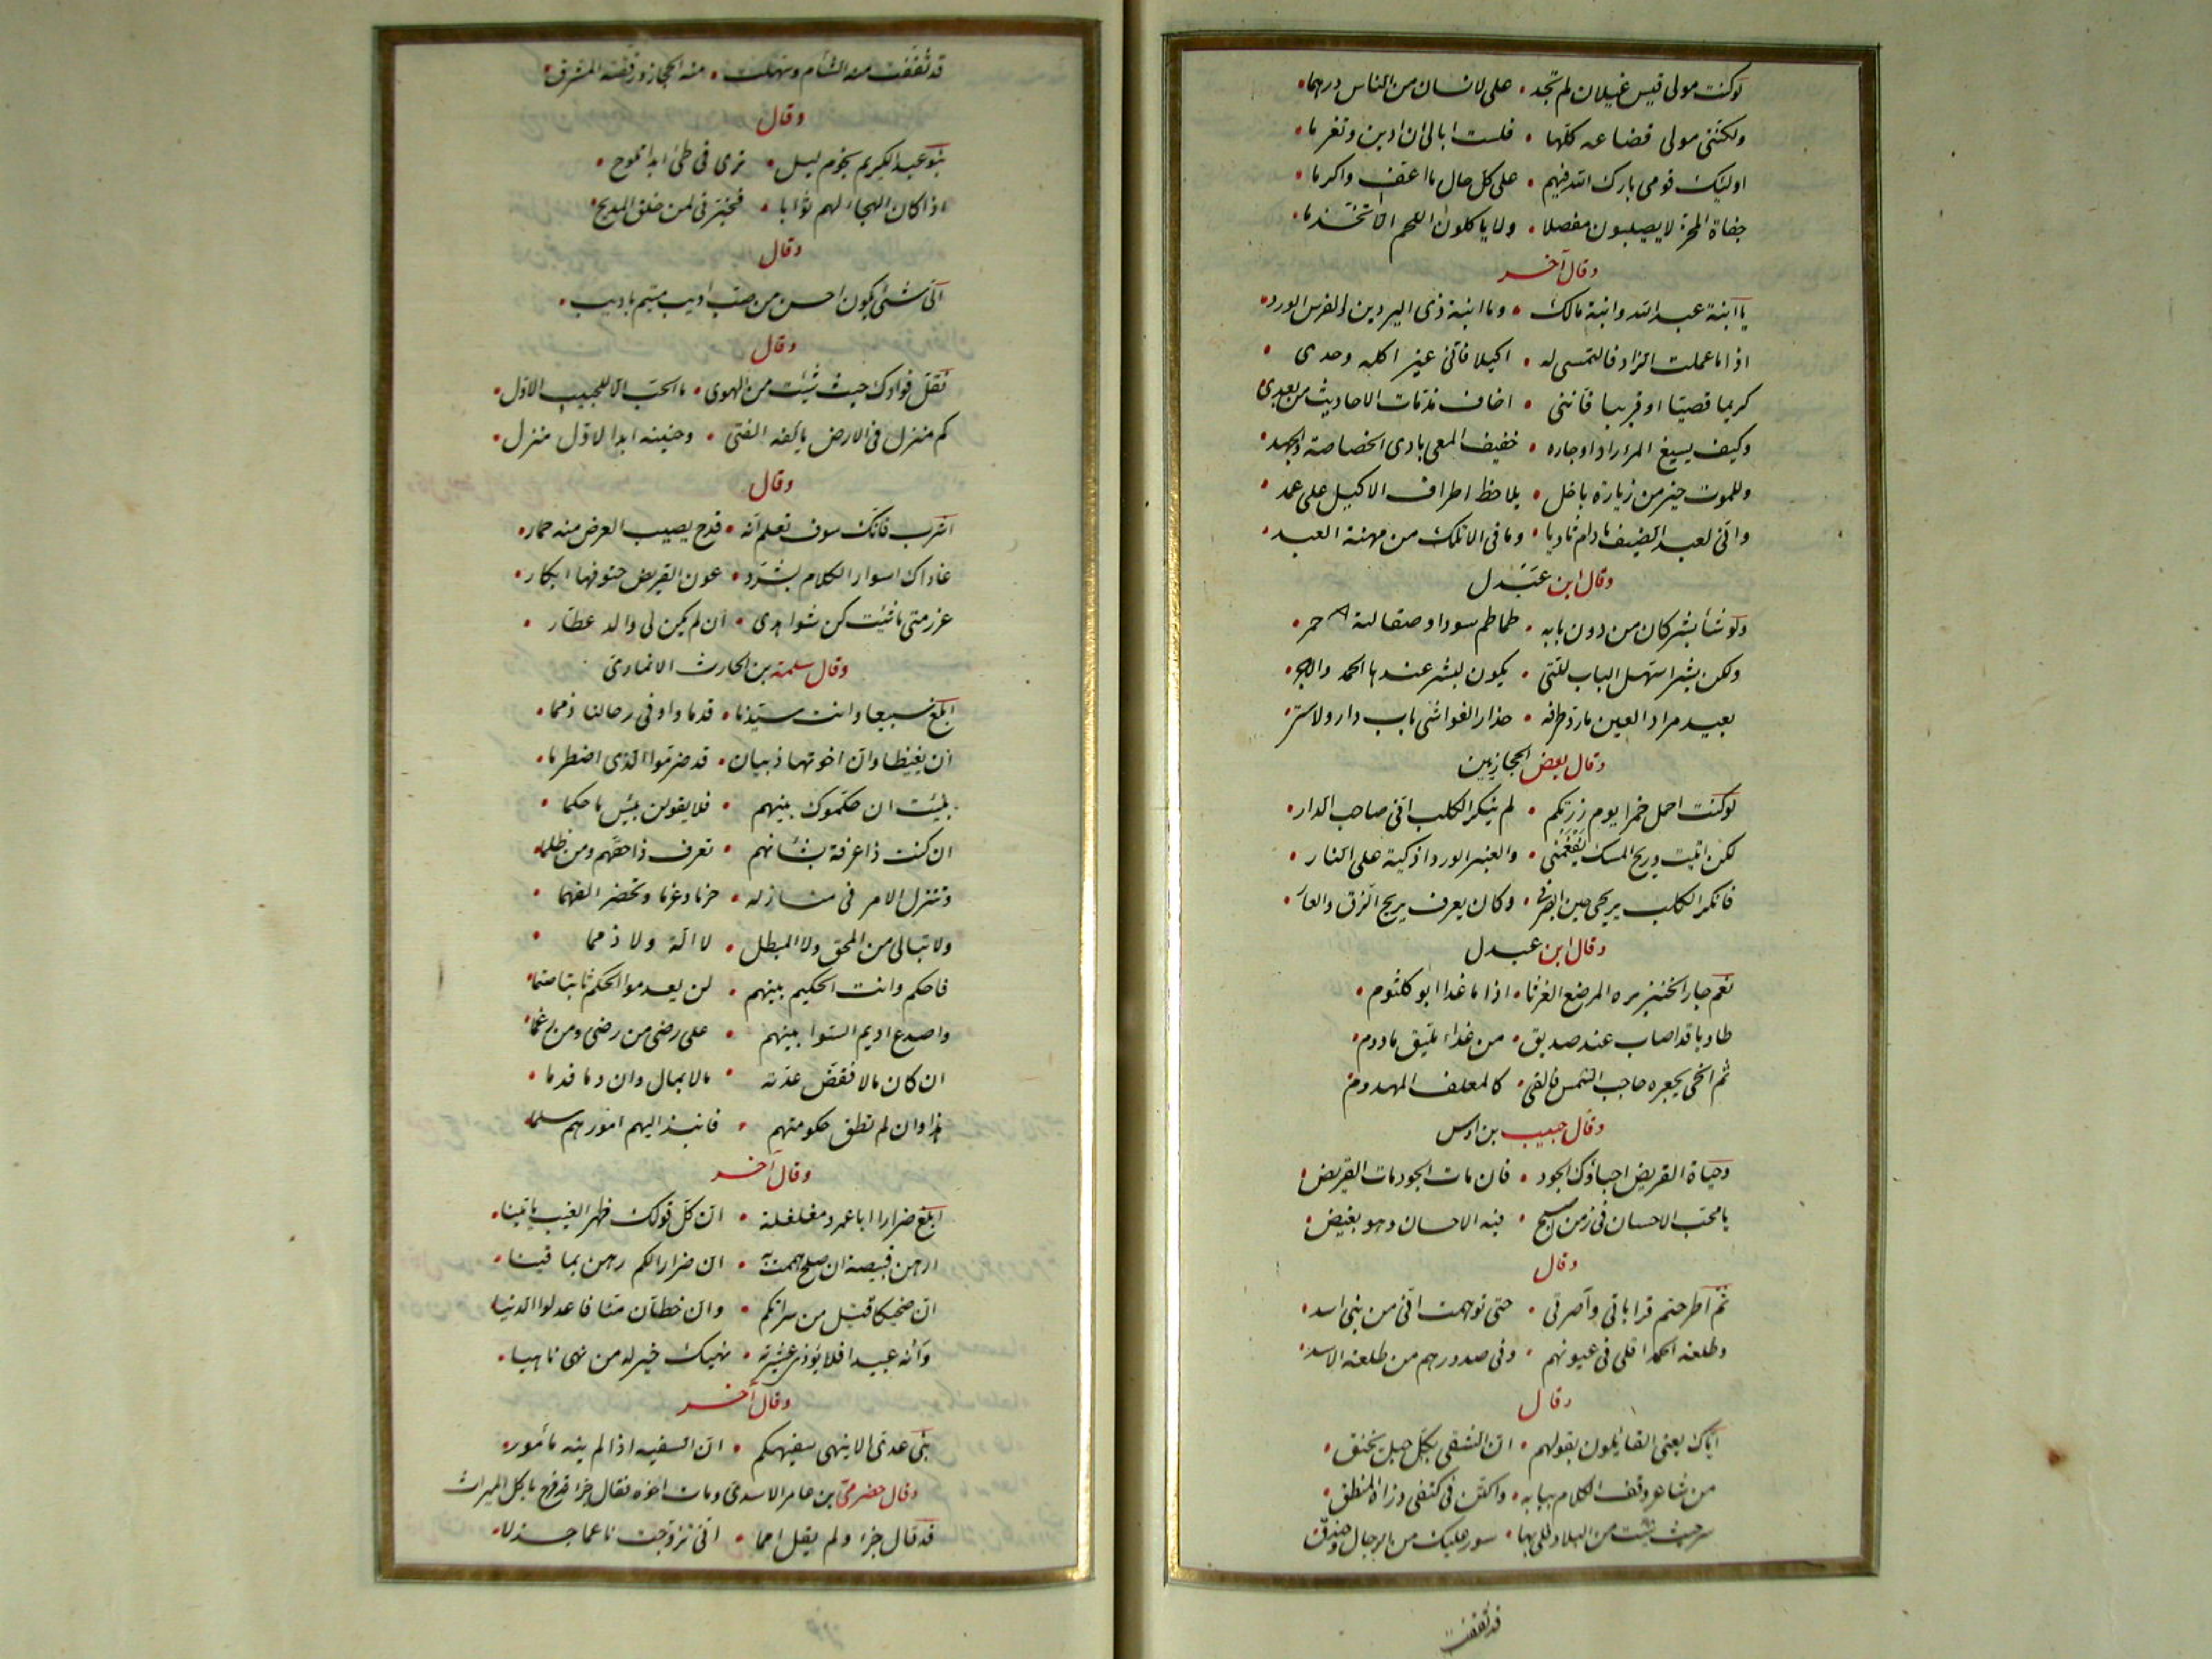 لو كنت مولى قيس غيلان لم تجد • على لانسان من الناس درهما •
ولكنني مولى قضاعه كلها • فلست ابالي ان ادين وتغرما •
اولئك قومي بارك الله فيهم • على كل حال ما اعف واكرما •
جفاة المحز لا يصيبون مفصلا • ولا ياكلون اللحم الا تخذما •
وقال آخر
يا ابنة عبد الله وابنة مالك • وما ابنة ذي البردين والفرس الورد •
اذا ما عملت الزاد فالتمسي له • اكيلا فاني غير اكله وحدي •
كريما قصيا او قريبا فانني • اخاف مذمات الاحاديث من بعدي •
وكيف يسيغ المرء زادا وجاره • خفيف المعى بادي الخصاصة والجهد •
وللموت خير من زيارة باخل • يلاحظ اطراف الاكيل على عمد •
واني لعبد الضيف مادام ثاويا • وما في الا تلك من مهنة العبد •
وقال ابن عبدل
ولو شا بشر كان من دون بابه • طماطم سود او صقالبة حمر •
ولكن بشرا سهل الباب للتي • يكون لبشر عندها الحمد والاجر •
بعيد مراد العين ما رد طرفه • حذار الغواشي باب دار ولا ستر •
وقال بعض الحجازيين
لو كنت احمل خمرا يوم زرتكم • لم ينكر الكلب اني صاحب الدار •
لكن اتيت وريح المسك يفغمني • والعنبر الورد اذكيه على النار •
فانكر الكلب ريحي حين ابصرني • وكان يعرف ريح الزق والقار •
وقال ابن عبدل
نعم جار الخنزيره المرضع الغرثا • اذا ما غدا ابو كلثوم •
طاويا قد اصاب عند صديق • من غدا، لبيق مادوم •
ثم انحى بجعره حاجب الشمس فالقى • كالمعلف المهدوم
وقال حبيب بن اوس
وحياة القريض احياؤك الجود • فان مات الجود مات القريض •
يا محب الاحسان في زمن اصبح • فيه الاحسان وهو بغيض •
وقال
ثم اطرحتم قراباتي وآصرتي • حتى توهمت اني من بني اسد •
وطلعة الحمد اقلى في عيونهم • وفي صدورهم من طلعة الاسد •
وقال
اياك يعني القائلون بقولهم • ان الشقي بكل حبل يخنق •
من شاعر وقف الكلام ببابه • واكتن في كنفي ذراه المنطق •
سر حيث شئت من البلاد فلي بها • سور عليك من الرجال وخندق
قد ثقفت
قد ثقفت منه الشام وسهلت • منه الحجاز ورققته المشرق •
وقال
بنو عبد الكريم نجوم ليل • ترى في طئ ابدا تلوح •
اذا كان الهجاء لهم ثوابا • فخبرني لمن خلق المديح •
وقال
اي شئ يكون احسن من صب اديب متيم باديب •
وقال
نقل فوادك حيث شئت من الهوى • ما الحب الا للحبيب الاول •
كم منزل في الارض يالفه الفتى • وحنينه ابدا لاول منزل •
وقال
اشرب فانك سوف تعلم انه • قدح يصيب العرض منه خمار •
غاداك اسوار الكلام بشرد • عون القريض حتوفها ابكار •
غرر متى ما شئت كن شواهدي • ان لم يكن لي والد عطار •
وقال سلمة بن الحارث الانماري
ابلغ سبيعا وانت سيدنا • قدما واوفى رجالنا ذمما •
ان بغيضا وان اخوتها ذبيان • قد ضرموا الذي اضطرما •
نبئت ان حكموك بينهم • فلا يقولن بئس ما حكما •
ان كنت ذا عرفة بشانهم • تعرف ذا حقهم ومن ظلما •
وتنزل الامر في منازله • حزما وعزما وتحضر الفهما •
ولا تبالي من المحق ولا المبطل • لا الة ولا ذمما •
فاحكم وانت الحكيم بينهم • لن يعدموا الحكم ثابتا صتما •
واصدع اديم السواء بينهم • على رضى من رضى ومن رغما •
ان كان مالا ففض عدته • مالا بمال وان دما فدما •
هذا وان لم تطق حكومتهم • فانبذ اليهم امورهم سلما •
وقال آخر
ابلغ ضرارا ابا عمرو مغلغلة • ان كل قولك ظهر الغيب ياتينا •
ارهن قبيصة ان صلح هممت به • ان ضرارا لكم رهن بما فينا •
ان ضحيكا قتيل من سراتكم • وان خطان منا فاعدلوا الدينا
وانه عبيدا فلا يؤذي عشيرته • نهيك خير له من نهى ناهينا •
وقال آخر
بني عدي الا ينهى سفيهكم • ان السفيه اذا لم ينه مأمور •
وقال حضرمي بن عامر الاسدي ومات اخوه فقال جزء قد فرح باكل الميراث
قد قال جزء ولم يقل امما • اني تزوجت ناعما جذلا •